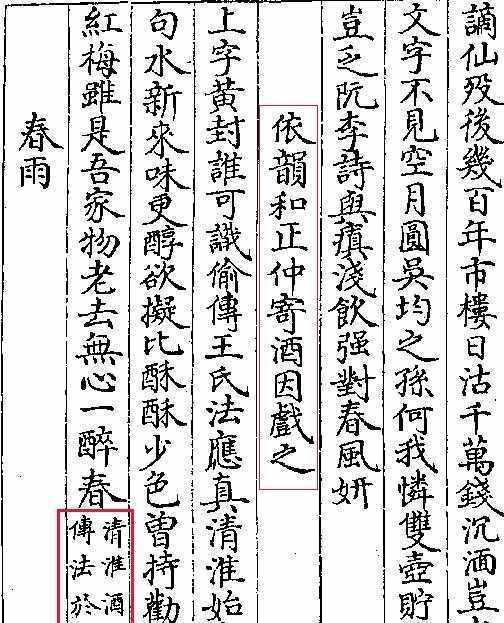 謫仙歿後幾百年市樓日沽千萬錢沉湎豈
文字不見空月圓吳均之孫何我憐雙壺貯
豈乏阮李詩與瘨淺飲强對春風妍
依韻和正仲寄酒因戲之
上字黄封誰可識偷傳王氏法應真清淮始
句水新來味更醇欲擬比酥酥少色曾持勸
紅梅雖是吾家物老去無心一醉春清淮酒
傳法於
春雨